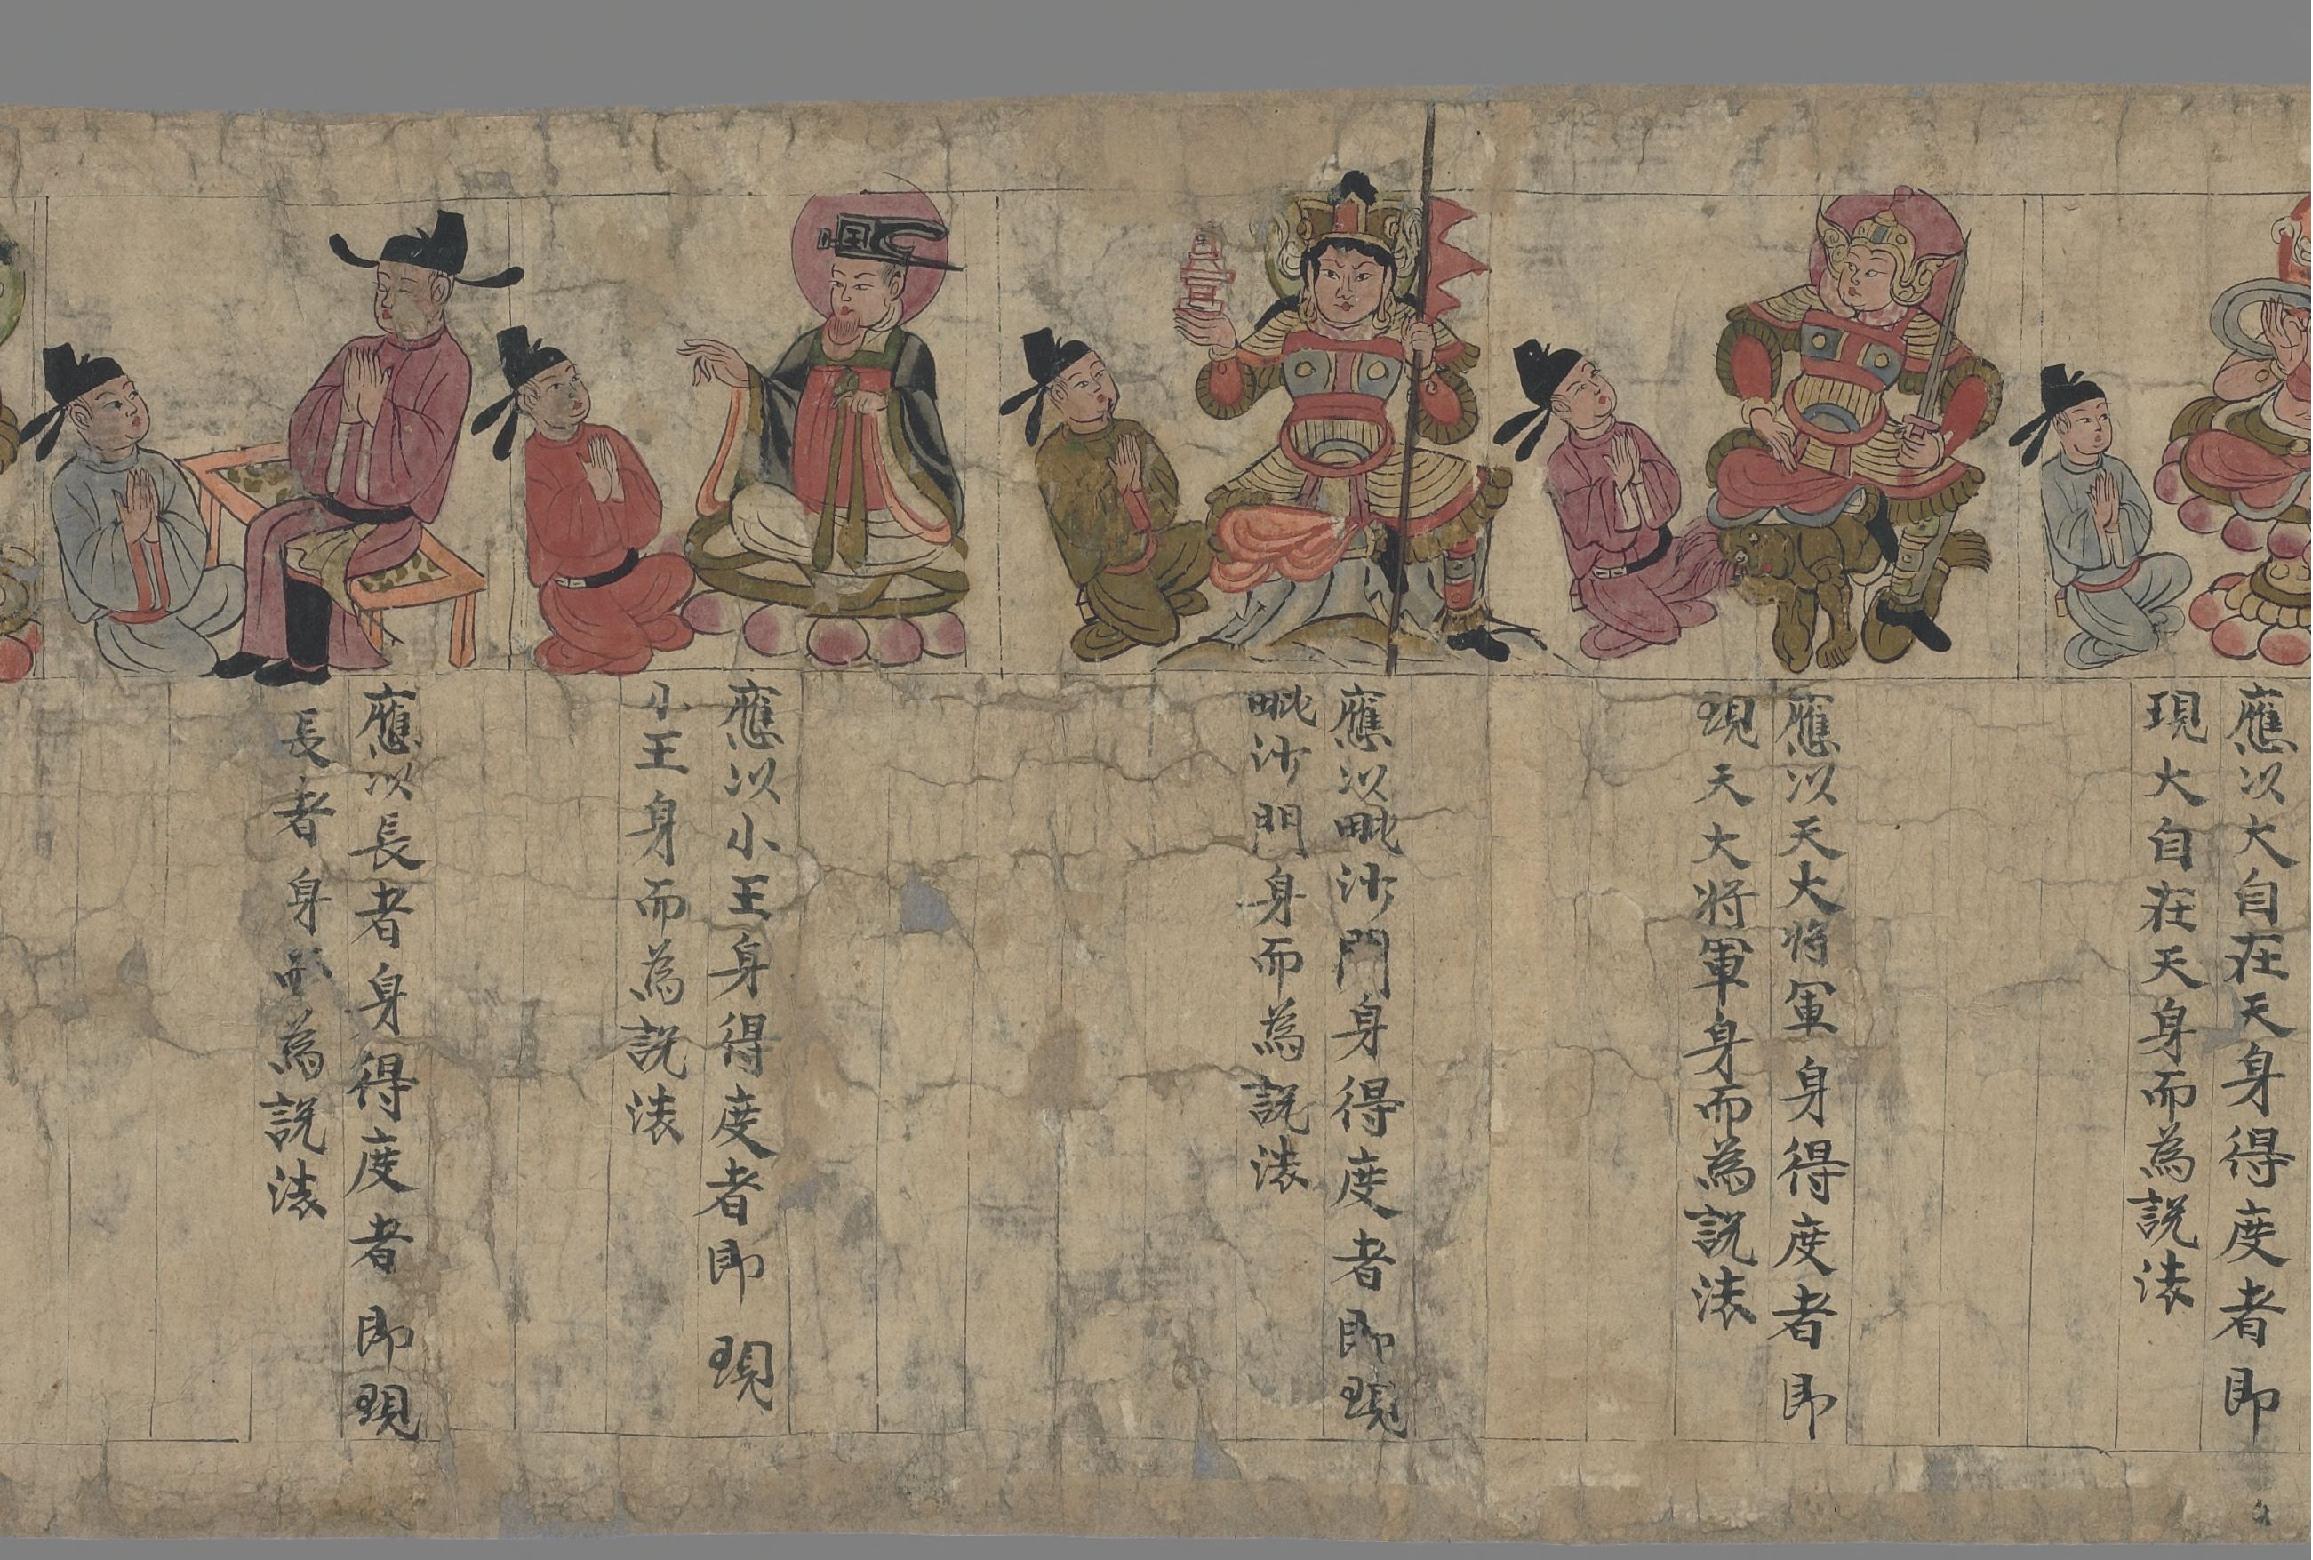 應以大自在天身得度者即
現大自在天身而為説法
應以天大将軍身得度者即
現天大将軍身而為説法
應以毗沙門身得度者即現
毗沙門身而為説法
應以小王身得度者即現
小王身而為説法
應以長者身得度者即現
長者身而為説法